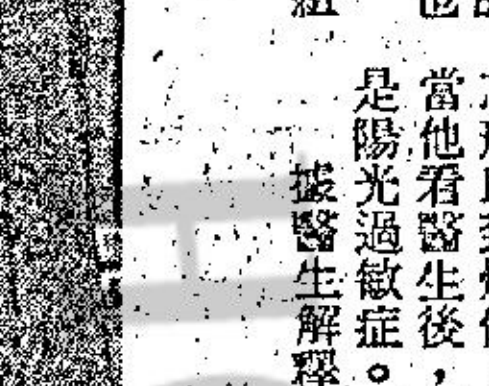 當他着醫生後，
是陽光過敏症。
據醫生解釋